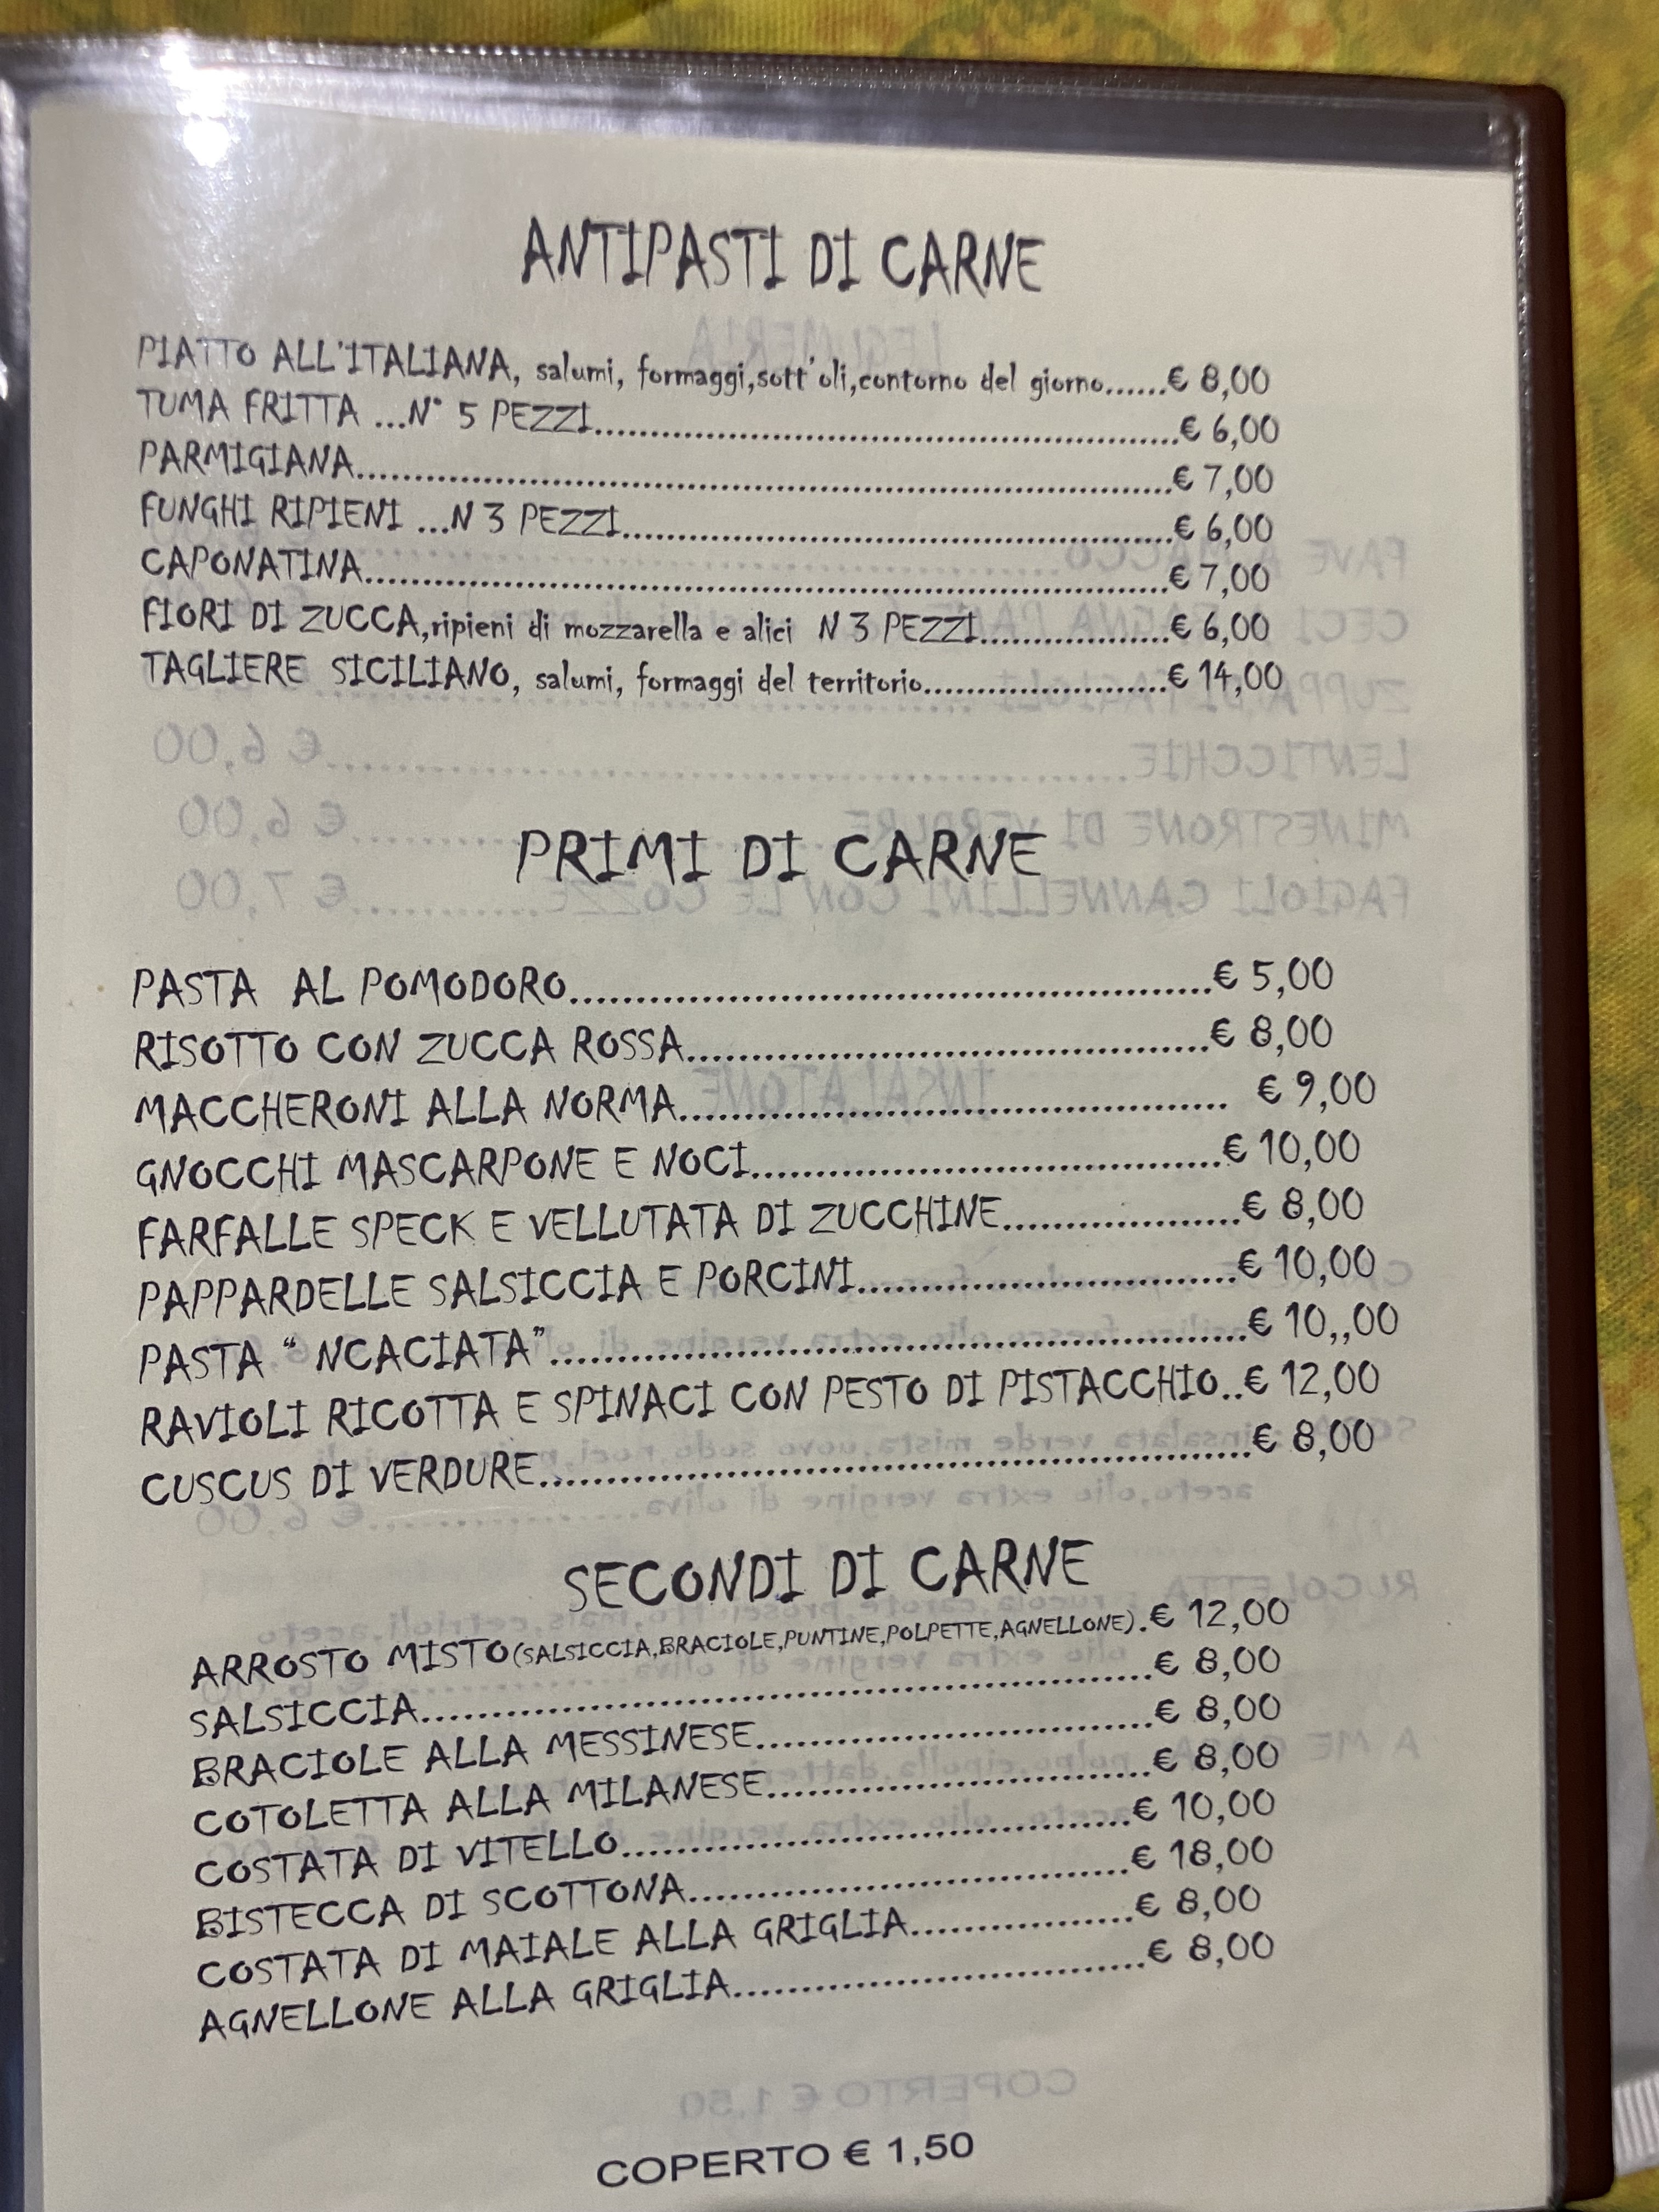 ANTIPASTI DI CARNE
PIATTO ALL'ITALIANA, salumi, formaggi,sott'oli,contorno del giorno......€ 8,00
TUMA FRITTA ...N° 5 PEZZI....................................................€ 6,00
PARMIGIANA........................................................................€ 7,00
FUNGHI RIPIENI ...N 3 PEZZI.................................................€ 6,00
CAPONATINA.......................................................................€ 7,00
FIORI DI ZUCCA,ripieni di mozzarella e alici N 3 PEZZI.................€ 6,00
TAGLIERE SICILIANO, salumi, formaggi del territorio......................€ 14,00
PRIMI DI CARNE
PASTA AL POMODORO.................................................€ 5,00
RISOTTO CON ZUCCA ROSSA........................................€ 8,00
MACCHERONI ALLA NORMA.......................................... € 9,00
GNOCCHI MASCARPONE E NOCI....................................€ 10,00
FARFALLE SPECK E VELLUTATA DI ZUCCHINE..................€ 8,00
PAPPARDELLE SALSICCIA E PORCINI.............................€ 10,00
PASTA " NCACIATA".....................................................€ 10,,00
RAVIOLI RICOTTA E SPINACI CON PESTO DI PISTACCHIO..€ 12,00
CUSCUS DI VERDURE......................................................€ 8,00
SECONDI DI CARNE
ARROSTO MISTO(SALSICCIA,BRACIOLE,PUNTINE,POLPETTE,AGNELLONE).€ 12,00
SALSICCIA................................................................€ 8,00
BRACIOLE ALLA MESSINESE...................................€ 8,00
COTOLETTA ALLA MILANESE..................................€ 8,00
COSTATA DI VITELLO.............................................€ 10,00
BISTECCA DI SCOTTONA.......................................€ 18,00
COSTATA DI MAIALE ALLA GRIGLIA...................€ 8,00
AGNELLONE ALLA GRIGLIA....................................€ 8,00
COPERTO € 1,50